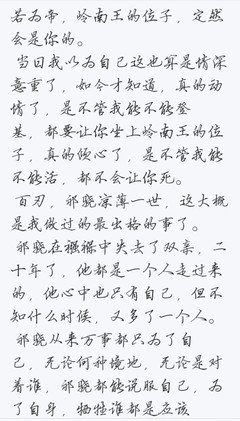 若为帝，岭南王的位子，定然
会是你的。
当日我以为自己这也算是情深
意重了，如今才知道，真的动
情了，是不管我能不能登
基，都要让你坐上岭南王的位
子，真的倾心了，是不管我能
不能活，都不会让你死。
百刃，祁骁凉薄一世，这大概
是我做过的最出格的事了。
祁骁在襁褓中失去了双亲，二
十年了，他都是一个人走过来
的，他心中也只有自己，但不
知什么时候，又多了一个人。
祁骁从来万事都只为了自
己，无论何种境地，无论是对
着谁，祁骁都能说服自己，为
了自身，牺牲谁都是应该